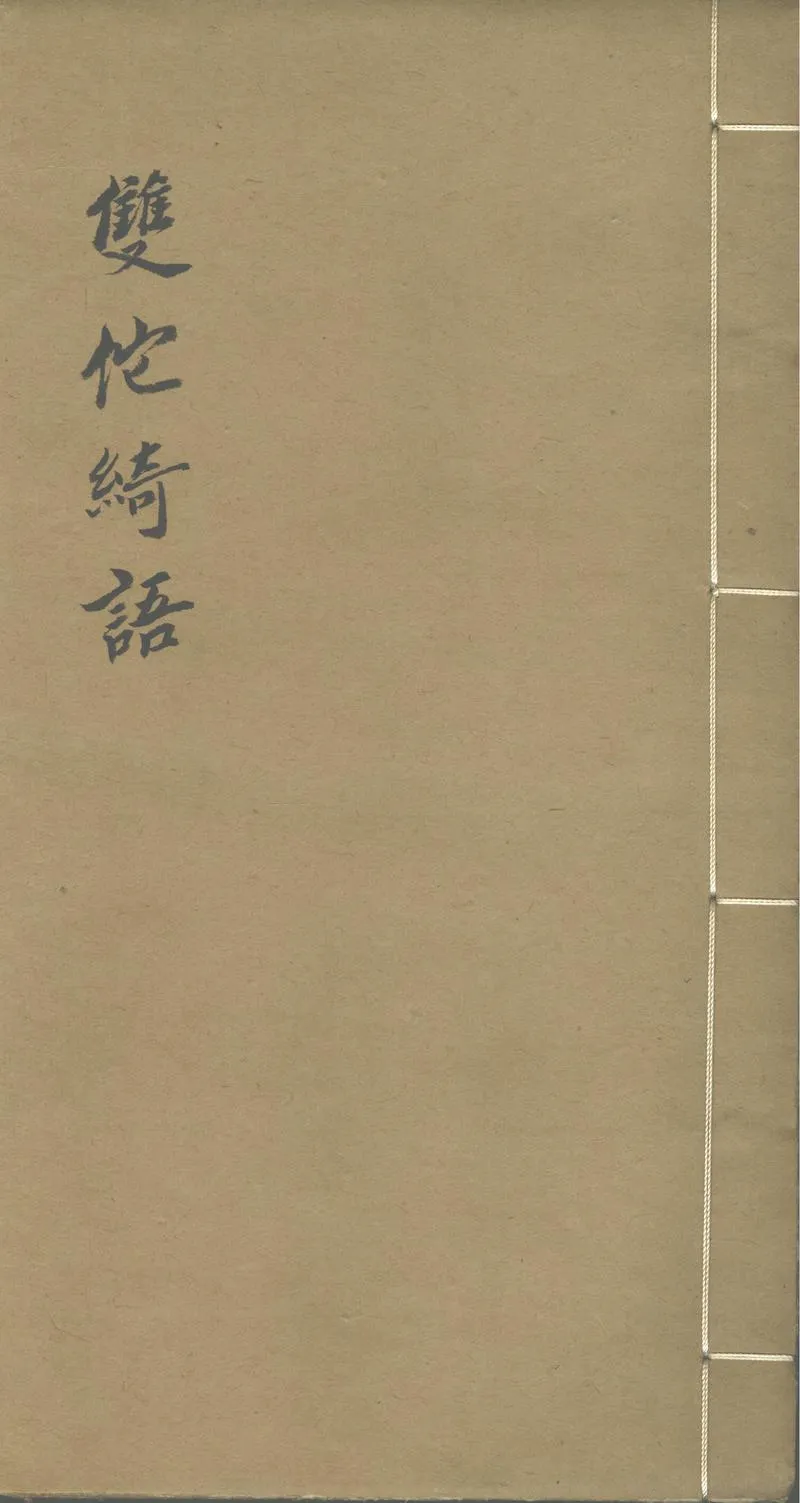 雙佗綺語